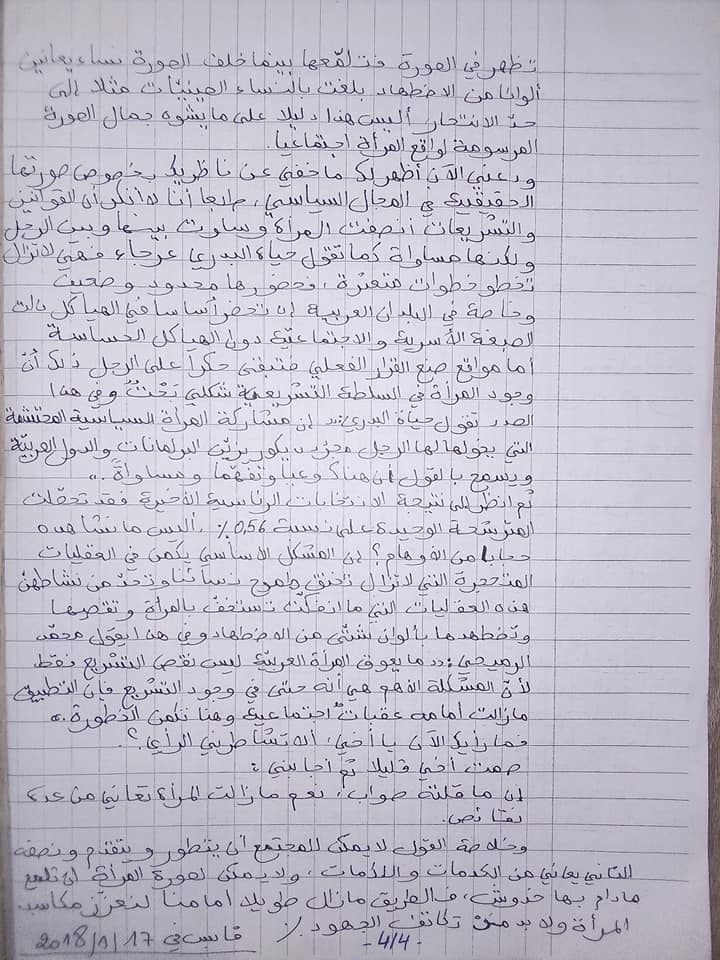 تظهر في الصورة فتلمّعها بينما خلف الصورة نساء يعانين
ألوانا من الاضطهاد بلغت بالنساء الصينيّات مثلا إلى
حدّ الانتحار أليس هذا دليلا على ما يشوه جمال الصورة
المرسومة لواقع المرأة اجتماعيا.
ودعني الآن أظهر لك ما خفي عن ناظريك بخصوص صورتها
الحقيقية في المجال السياسي، طبعا أنا لا أنكر أن القوانين
والتشريعات أنصفت المرأة وساوت بينها وبين الرجل
ولكنها مساواة كما تقول حياة البدري عرجاء فهي لا تزال
تخطو خطوات متعثرة، وحضورها محدود وضعيف
وخاصة في البلدان العربية إن تحضر أساسا في الهياكل ذات
الصبغة الأسرية والاجتماعية دون الهياكل الحساسة
أما مواقع صنع القرار الفعلي فتبقى حكرا على الرجل ذلك أنّ
وجود المرأة في السلطة التشريعية شكلي بَحْتٌ وفي هذا
الصدد تقول حياة البدري: ,, إن مشاركة المرأة السياسية المحتشمة
التي يخولها لها الرجل مجرد ديكور يزيّن البرلمانات والدول العربيّة
ويسمح بالقول أن هناك وعيا وتفهّما ومساواةً ,,
ثم انظر إلى نتيجة الانتخابات الرئاسية الأخيرة فقد تحصّلت
المترشحة الوحيدة على نسبة 0,56٪، أليس ما نشاهده
حجابا من الأوهام؟ إن المشكل الأساسي يكمن في العقليات
المتحجرة التي لا تزال تخنق طموح نسائنا وتحدّ من نشاطهنّ
هذه العقليات التي ما انفكّت تستخفّ بالمرأة وتقصيها
وتضطهدها بألوان شتّى من الاضطهاد وفي هذا يقول محمّد
الرميحي: ,, ما يعوق المرأة العربيّة ليس نقص التشريع فقط،
لأنّ المشكلة الأهم هي أنه حتى في وجود التشريع فإن التطبيق
مازالت أمامه عقبات اجتماعية وهنا تكمن الخطورة ,,
فما رأيك الآن يا أخي، ألا تشاطرني الرأي؟.
صمت أخي قليلا ثم أجابني:
إن ما قلته صواب، نعم مازالت المرأة تعاني من عدة
نقائص.
وخلاصة القول لا يمكن للمجتمع أن يتطور ويتقدم ونصفه
الثاني يعاني من الكدمات، ولا يمكن لصورة المرأة أن تلمع
مادام بها خدوش، فالطريق مازال طويلا أمامنا لنعزّز مكاسب
المرأة ولا بد من تكاتف الجهود ./.
قابس في 2018/1/17
- 4/4 -